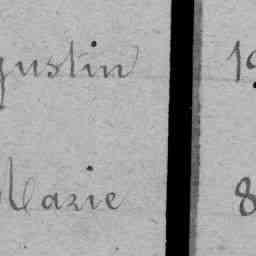 gustin 19
Marie 8